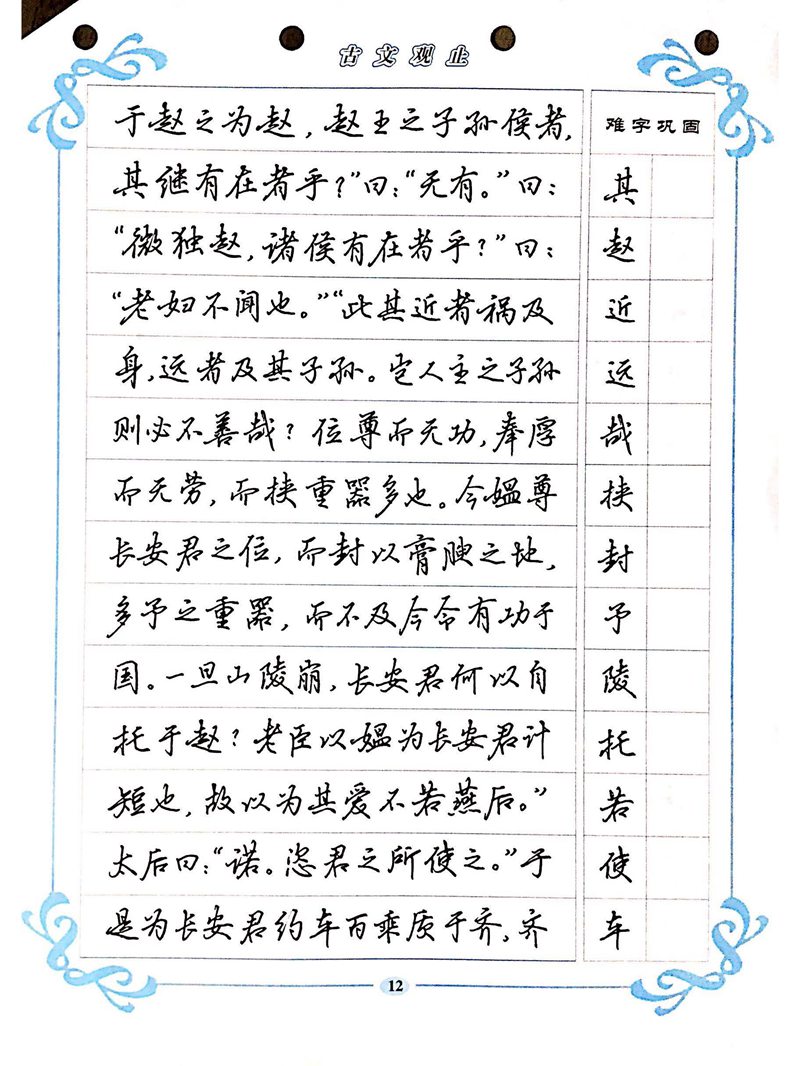 古文观止
于赵之为赵，赵王之子孙侯者，
其继有在者乎？”曰：“无有。”曰：
“微独赵，诸侯有在者乎？”曰：
“老妇不闻也。”“此其近者祸及
身，远者及其子孙。岂人主之子孙
则必不善哉？位尊而无功，奉厚
而无劳，而挟重器多也。今媪尊
长安君之位，而封以膏腴之地，
多予之重器，而不及今令有功于
国。一旦山陵崩，长安君何以自
托于赵？老臣以媪为长安君计
短也，故以为其爱不若燕后。”
太后曰：“诺。恣君之所使之。”于
是为长安君约车百乘质于齐，齐
难字巩固
其
赵
近
远
哉
挟
封
予
陵
托
若
使
车
12